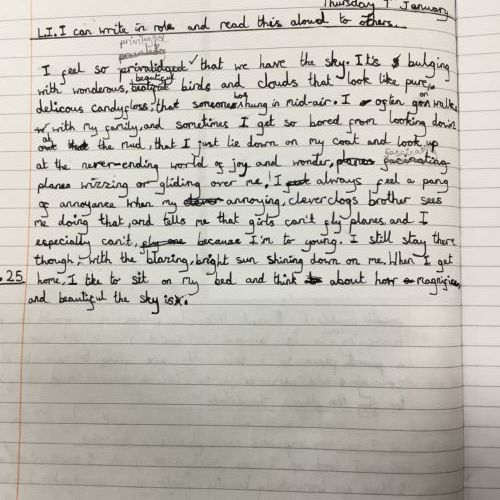 Thursday 9 January
L.I. I can write in role and read this aloud to others.
privileged
I feel so prividalidged that we have the sky. It's bulging
beautiful
with wonderous, birds and clouds that look like pure,
delicous candyfloss, that someone has hung in mid-air. I often go on walks
with my family, and sometimes I get so bored from looking down
at the mud, that I just lie down on my coat and look up
fascinating
at the never-ending world of joy and wonder, planes facinating
planes wizzing or gliding over me! I always feel a pang
of annoyance when my clever annoying, cleverclogs brother sees
me doing that, and tells me that girls can't fly planes, and I
especially can't, because I'm to young. I still stay there
though, with the blazing, bright sun shining down on me. When I get
.25 home, I like to sit on my bed and think about how magnificen
and beautiful the sky is.